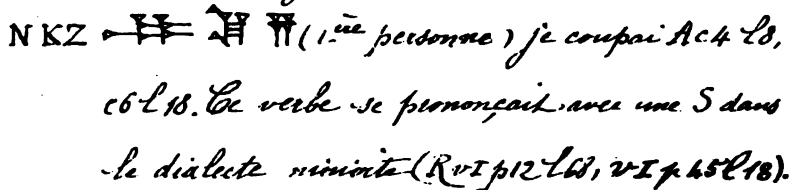 N K Z (1.ère personne) je coupai A c 4 l 8,
c 6 l 18. Ce verbe se prononçait avec une S dans
le dialecte ninivite (R v I p 12 l 68, v I p 45 l 18).